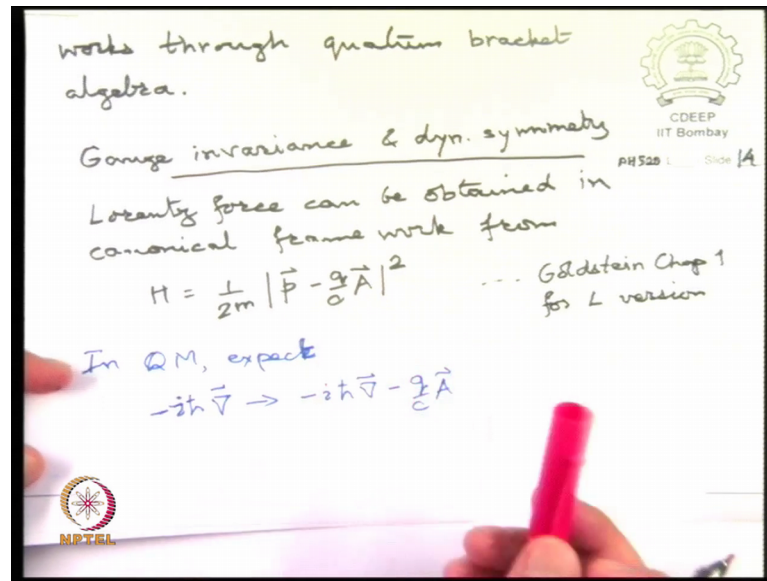 works through quatum bracket
algebra.
CDEEP
IIT Bombay
Gauge invariance & dyn. symmetry
PH520 L Slide 14
Lorentz force can be obtained in
canonical frame work from
H = 1/2m |p⃗ - q/c A⃗|² ... Goldstein Chap 1
for L version
In QM, expect
-iħ∇⃗ → -iħ∇⃗ - q/c A⃗
NPTEL